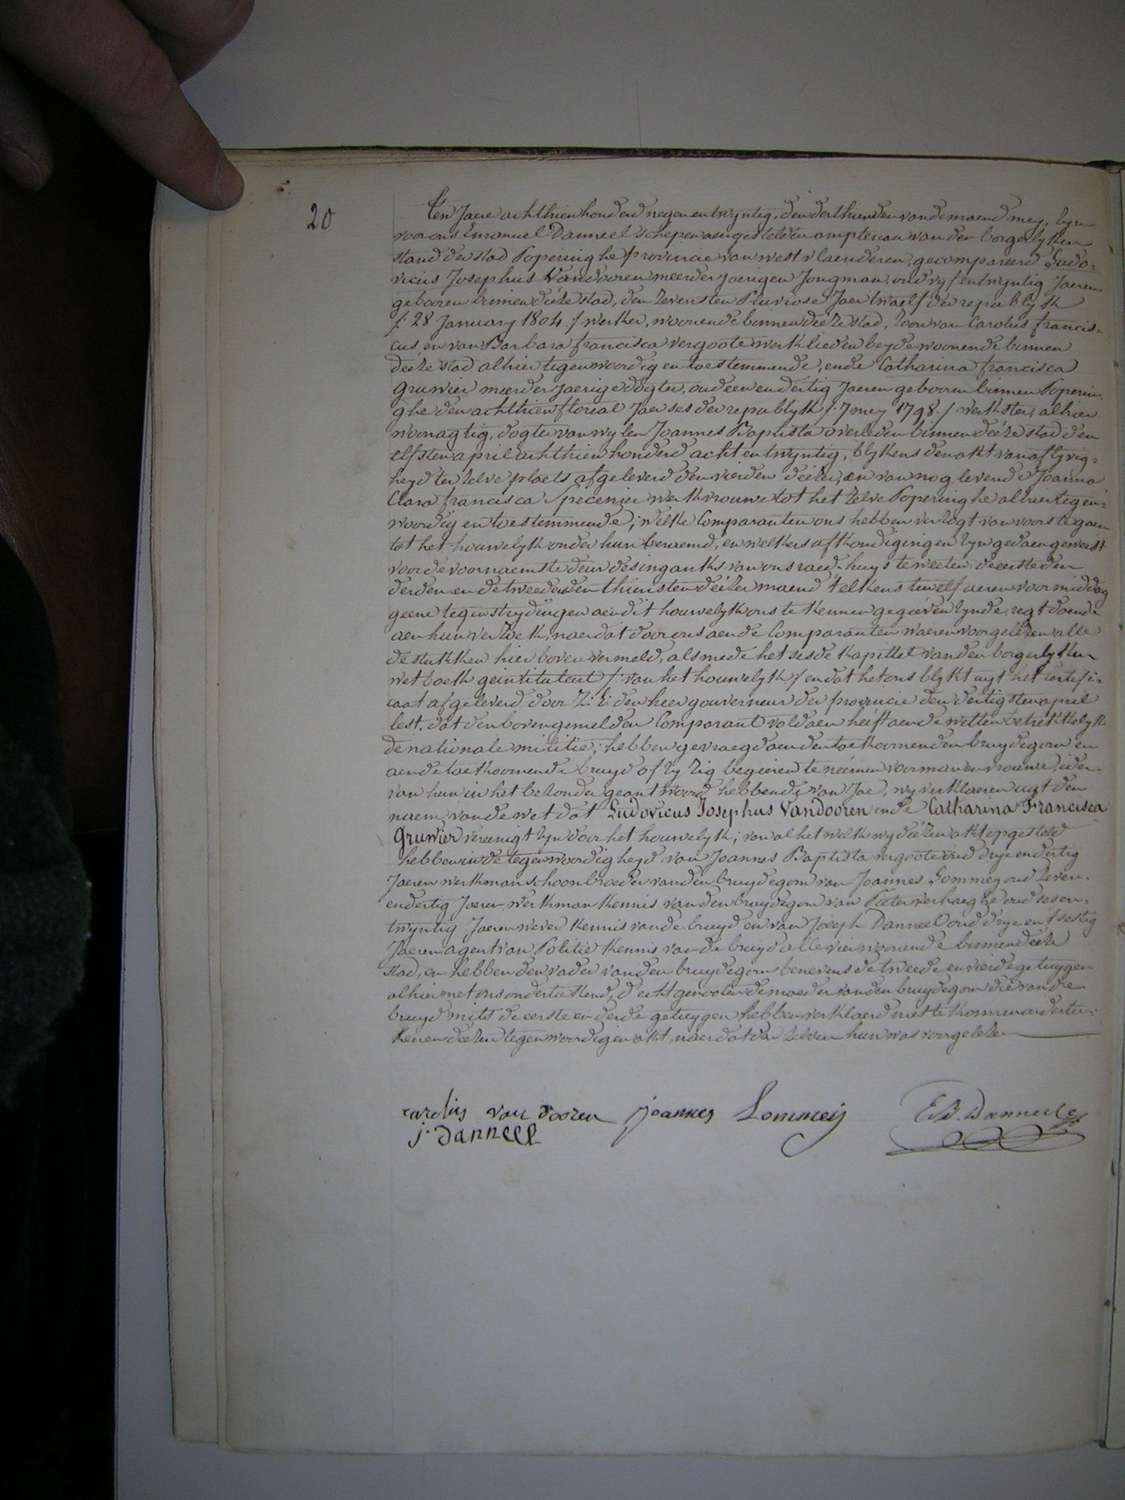 20
Ten Jaere achthien honderd negen en twyntig, den derthienden van de maend mey, zyn
voor ons Emanuel Danneel schepen aengestelden amptenaer van den borgerlyken
stand der stad Poperinghe provincie van west vlaenderen, gecompareerd Ludo-
vicus Josephus Vandooren meerderjoerigen Jongman, oud vyf entwyntig Jaeren
geboren binnen deéze stad, den zevensten Pluviose Jaer twaelf der republyk
/: 28 January 1804 / werker, woonende binnen deéze stad, zoon van Carolus francis-
cus en van Barbara francisca vergoote werklieden beyde woonende binnen
deéze stad alhier tegenwoordig en toestemmende, ende Catharina francisca
Gruwier meerderjaerige dogter, oud een en dertig Jaeren geboren binnen Poperin-
ghe den achthien floreal Jaer ses der republyk /: 7 mey 1798 / werkster, alhier
woonagtig, dogter van wylen Joannes Baptista overleden binnen deéze stad den
elfsten april achthien honderd acht en twyntig, blykens den akt van aflyvig-
heyd ter zelve plaets afgeleverd den vierden deézer, en van nog levende Joanna
Clara francisca Specenier werkvrouwe tot het zelve Poperinghe alhier tegen-
woordig en toestemmende; welke Comparanten ons hebben verzogt van voorts te gaen
tot het houwelyk onder hun beraemd, en welkers afkondigingen zyn gedaen geweest
voor de voornaemste deur des ingangks van ons raedhuys te weeten de eerste den
derden en de tweede den thiensten deézer maend telkens ten elf ueren voormiddag
geene tegenstrydingen aen dit houwelyk ons te kennen gegeéven zynde, regt doende
aen hun verzoek, naer dat door ons aen de Comparanten waeren voorgelezen alle
de stukken hier boven vermeld, alsmede het sesde kapittel van den borgerlyken
wetboek geintituleert /: van het houwelyk / en dat het ons blykt uyt het certifi-
caat afgeleverd door Z:E: den heer gouverneur der provincie den dertigsten april
lest, dat den bovengemelden Comparant voldaen heeft aen de wetten betrekkelyk
de nationale militie; hebben gevraegd aen den toekoomenden bruydegom en
aen de toekoomende bruyd of zy zig begeéren te neémen voor man en vrouwe, ider
van hun in het bezonder geantwoord hebbende van Jae, wy verklaeren uyt den
naem van de wet dat Ludovicus Josephus Vandooren ende Catharina Francisca
Gruwier vereenigt zyn door het houwelyk; van al het welk wy deézen akt opgesteld
hebben in de tegenwoordigheyd van Joannes Baptista vergoote oud drye en dertig
Jaeren werkman schoonbroeder van den bruydegom van Joannes Lommey oud zeven-
endertig Jaeren werkman kennis van den bruydegom van Pieter verhaeghe oud sesen-
twyntig Jaeren wever kennis van de bruyd en van Joseph Danneel oud drye en sestig
Jaeren agent van Politie kennis van de bruyd alle vier woonende binnen deéze
stad, en hebben den vader van den bruydegom benevens de tweede en vierde getuygen
alhier met ons onderteekend, d'echtgenooten de moeder van den bruydegom die van de
bruyd mits de eerste en derde getuygen hebben verklaerd niet te konnen onderteé-
kenen deézen tegenwoordigen akt, naer dat den zelven hun was voorgelezen
carolus van dooren joannes Lommeij E.B. Danneel
j. Danneel